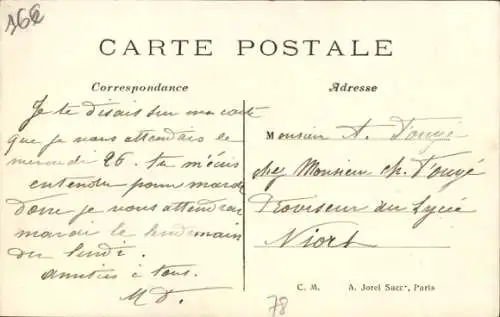 16€
CARTE POSTALE
Correspondance
Adresse
Je te disais sur ma carte
que je vous attendais le
mercredi 26. tu m'écris
entendu pour mardi
Donc je vous attendrai
mardi le lendemain
du lundi.
Amitiés à tous.
M D.
Monsieur A. Fouyé
chez Monsieur ch. Fouyé
Proviseur du Lycée
Niort
C. M. A. Jorel Sacr, Paris
78